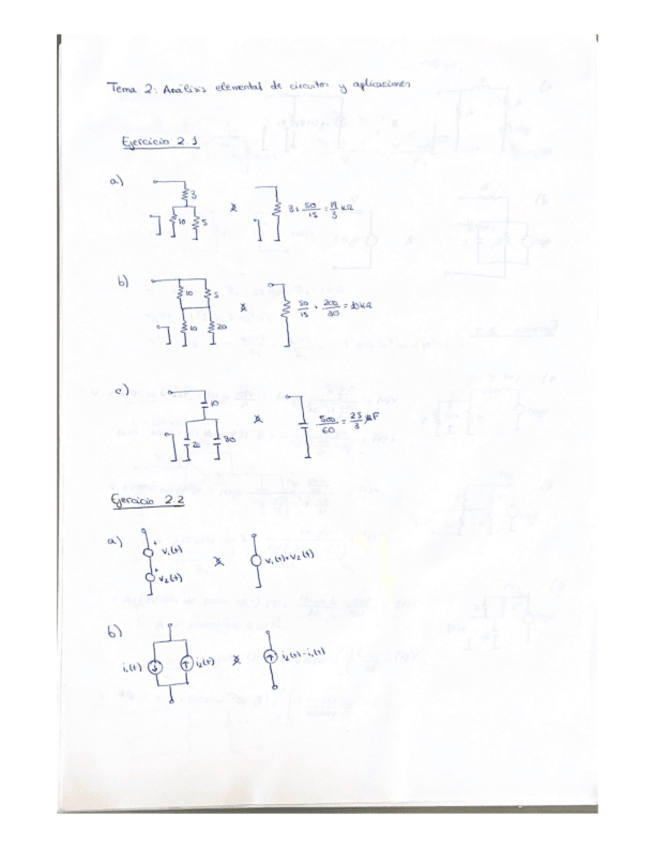 Tema 2: Análisis elemental de circuitos y aplicaciones
Ejercicio 2.1
a)
3
10
5
3 + 50/15 = 19/3 kΩ
b)
10
5
10
20
50/15 + 200/30 = 10 kΩ
c)
10
20
30
500/60 = 25/3 µF
Ejercicio 2.2
a)
+
v₁(t)
+
v₂(t)
v₁(t)+v₂(t)
b)
i₁(t)
i₂(t)
i₂(t)-i₁(t)